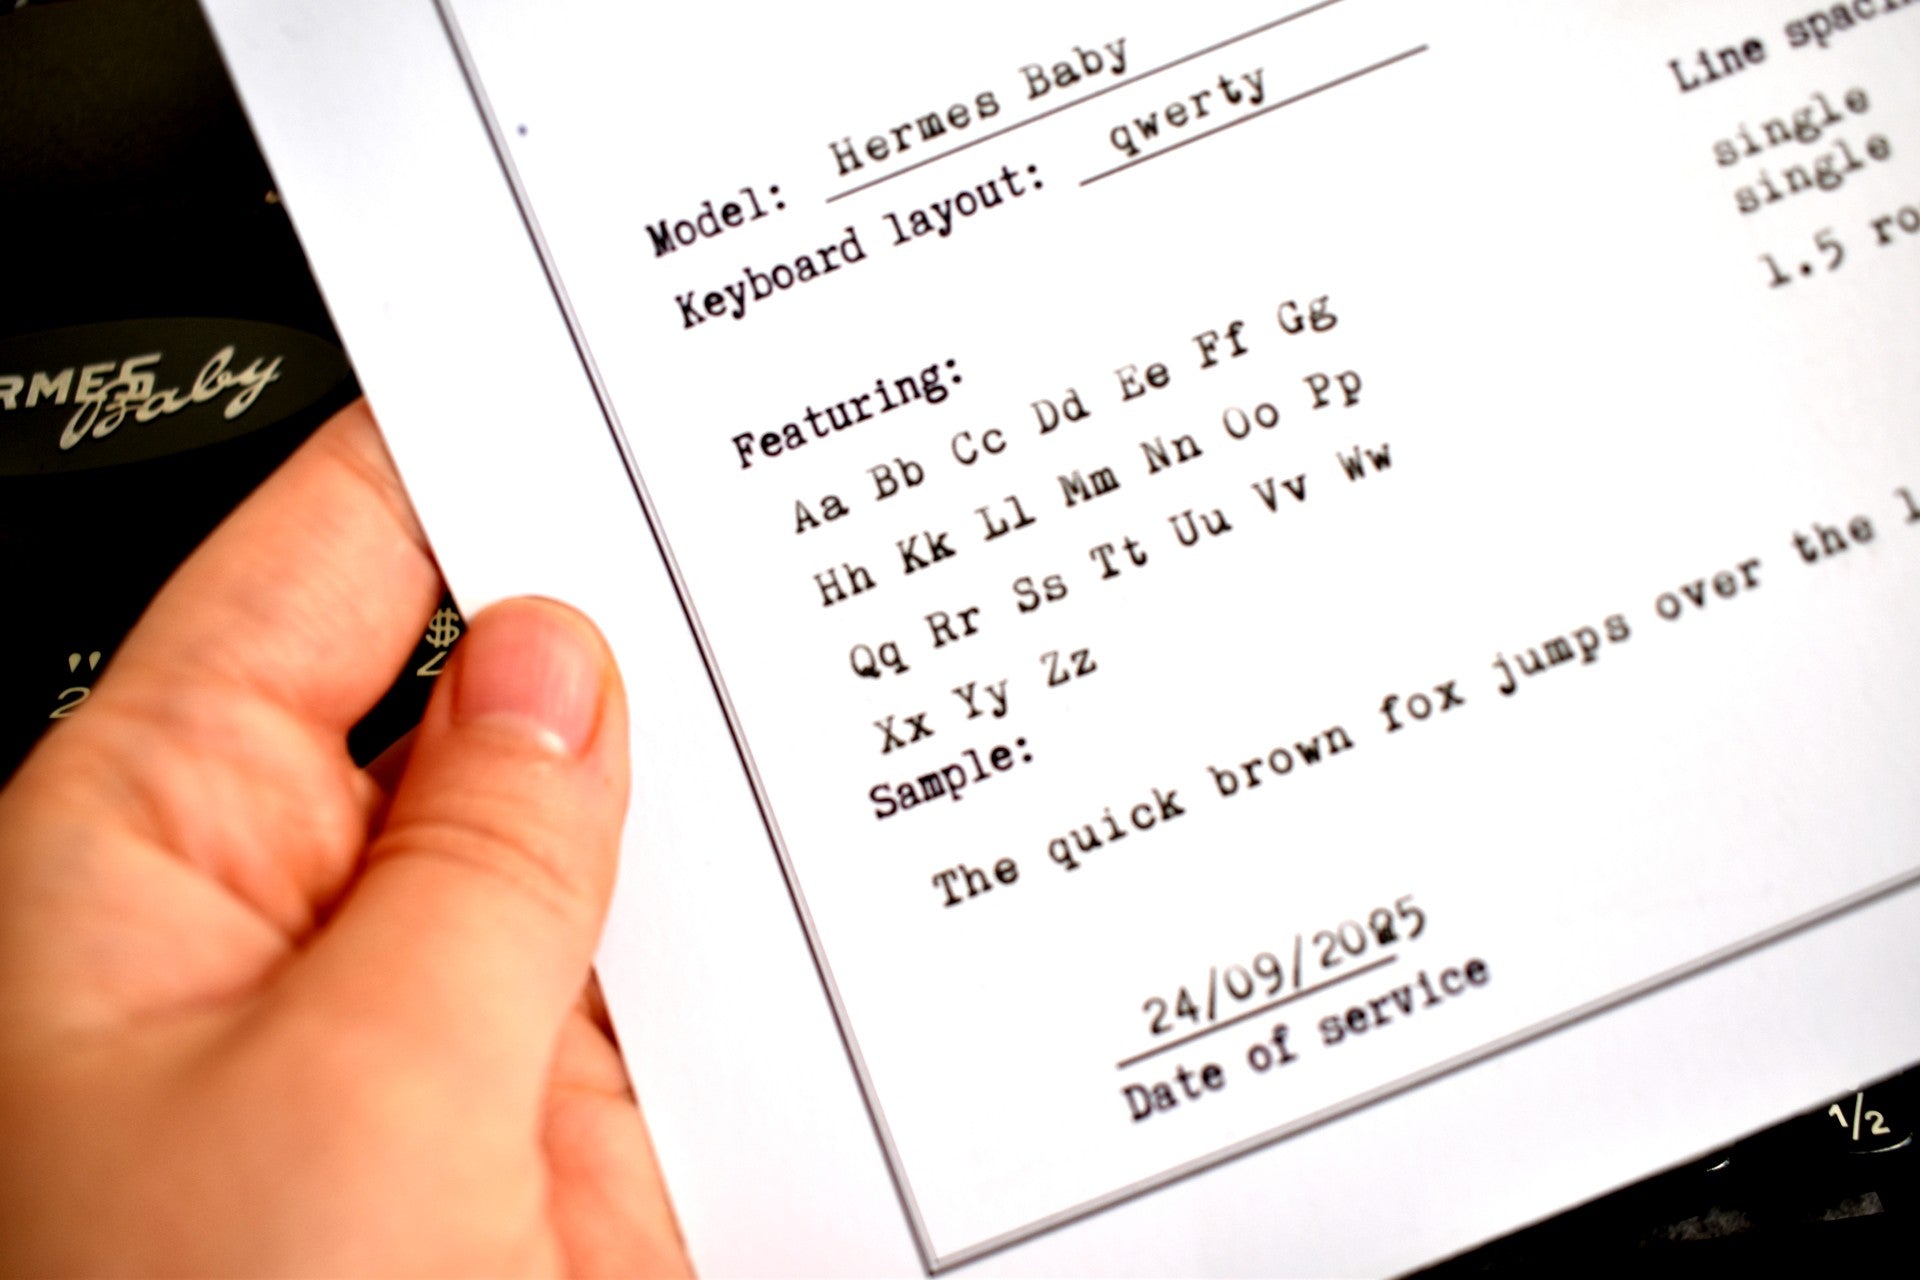 Model: Hermes Baby
Keyboard layout: qwerty
Featuring:
Aa Bb Cc Dd Ee Ff Gg
Hh Kk Ll Mm Nn Oo Pp
Qq Rr Ss Tt Uu Vv Ww
Xx Yy Zz
Sample:
The quick brown fox jumps over the l
24/09/2025
Date of service
Line spacin
single
single
1.5 ro
RMES Baby
"
2
$
1/2